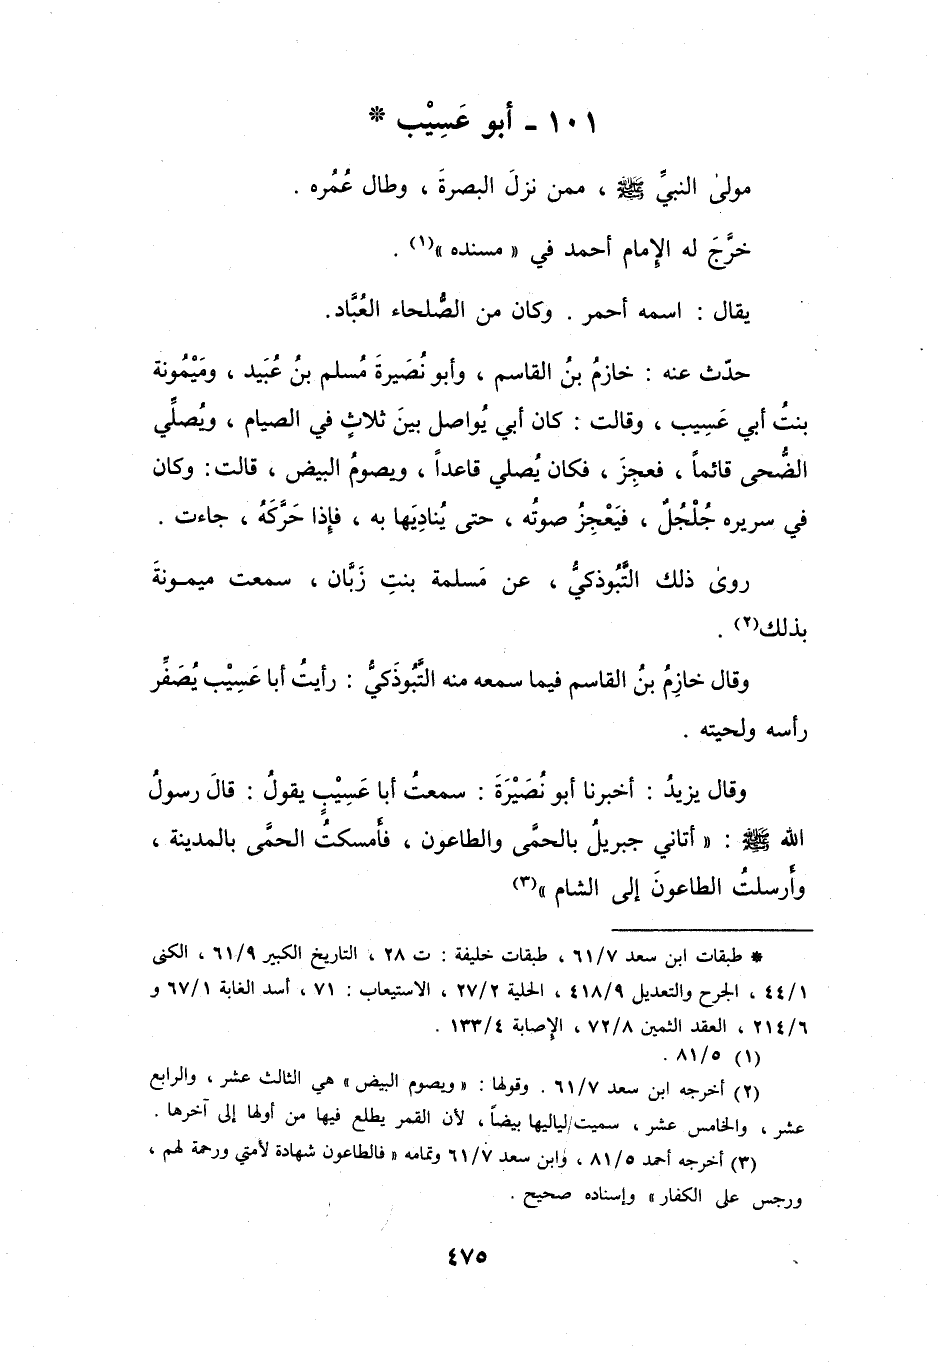 ١٠١ - أبو عَسِيْب *
مولىٰ النبيِّ ﷺ ، ممن نزلَ البصرةَ ، وطال عُمُره .
خرَّجَ له الإمام أحمد في « مسنده »(١) .
يقال : اسمه أحمر . وكان من الصُّلحاء العُبَّاد.
حدّث عنه : خازمُ بنُ القاسم ، وأبو نُصَيرةَ مُسلم بنُ عُبَيد ، ومَيْمُونة
بنتُ أبي عَسِيب ، وقالت : كان أبي يُواصل بينَ ثلاثٍ في الصيام ، ويُصلِّي
الضُّحى قائماً ، فعجِزَ ، فكان يُصلي قاعداً ، ويصومُ البيض ، قالت: وكان
في سريره جُلْجُلٌ ، فيَعْجِزُ صوتُه ، حتى يُنادِيَها به ، فإذا حَرَّكَهُ ، جاءت .
روىٰ ذلك التَّبُوذكيُّ ، عن مَسلمة بنتِ زَبَّان ، سمعت ميمـونةَ
بذلك(٢) .
وقال خازِمُ بنُ القاسم فيما سمعه منه التَّبُوذَكيُّ : رأيتُ أبا عَسِيْب يُصَفِّر
رأسه ولحيته .
وقال يزيدُ : أخبرنا أبو نُصَيْرَةَ : سمعتُ أبا عَسِيْبٍ يقولُ : قالَ رسولُ
الله ﷺ : « أتاني جبريلُ بالحمَّى والطاعون ، فأَمسكتُ الحمَّى بالمدينة ،
وأَرسلتُ الطاعونَ إلى الشام »(٣)
* طبقات ابن سعد ٦١/٧ ، طبقات خليفة : ت ٢٨ ، التاريخ الكبير ٦١/٩ ، الكنى
٤٤/١ ، الجرح والتعديل ٤١٨/٩ ، الحلية ٢٧/٢ ، الاستيعاب : ٧١ ، أسد الغابة ٦٧/١ و
٢١٤/٦ ، العقد الثمين ٧٢/٨ ، الإصابة ١٣٣/٤ .
(١) ٨١/٥ .
(٢) أخرجه ابن سعد ٦١/٧ . وقولها : « ويصوم البيض » هي الثالث عشر ، والرابع
عشر ، والخامس عشر ، سميت لياليها بيضاً ، لأن القمر يطلع فيها من أولها إلى آخرها .
(٣) أخرجه أحمد ٨١/٥ ، وابن سعد ٦١/٧ وتمامه « فالطاعون شهادة لأمتي ورحمة لهم ،
ورجس على الكفار » وإسناده صحيح .
٤٧٥